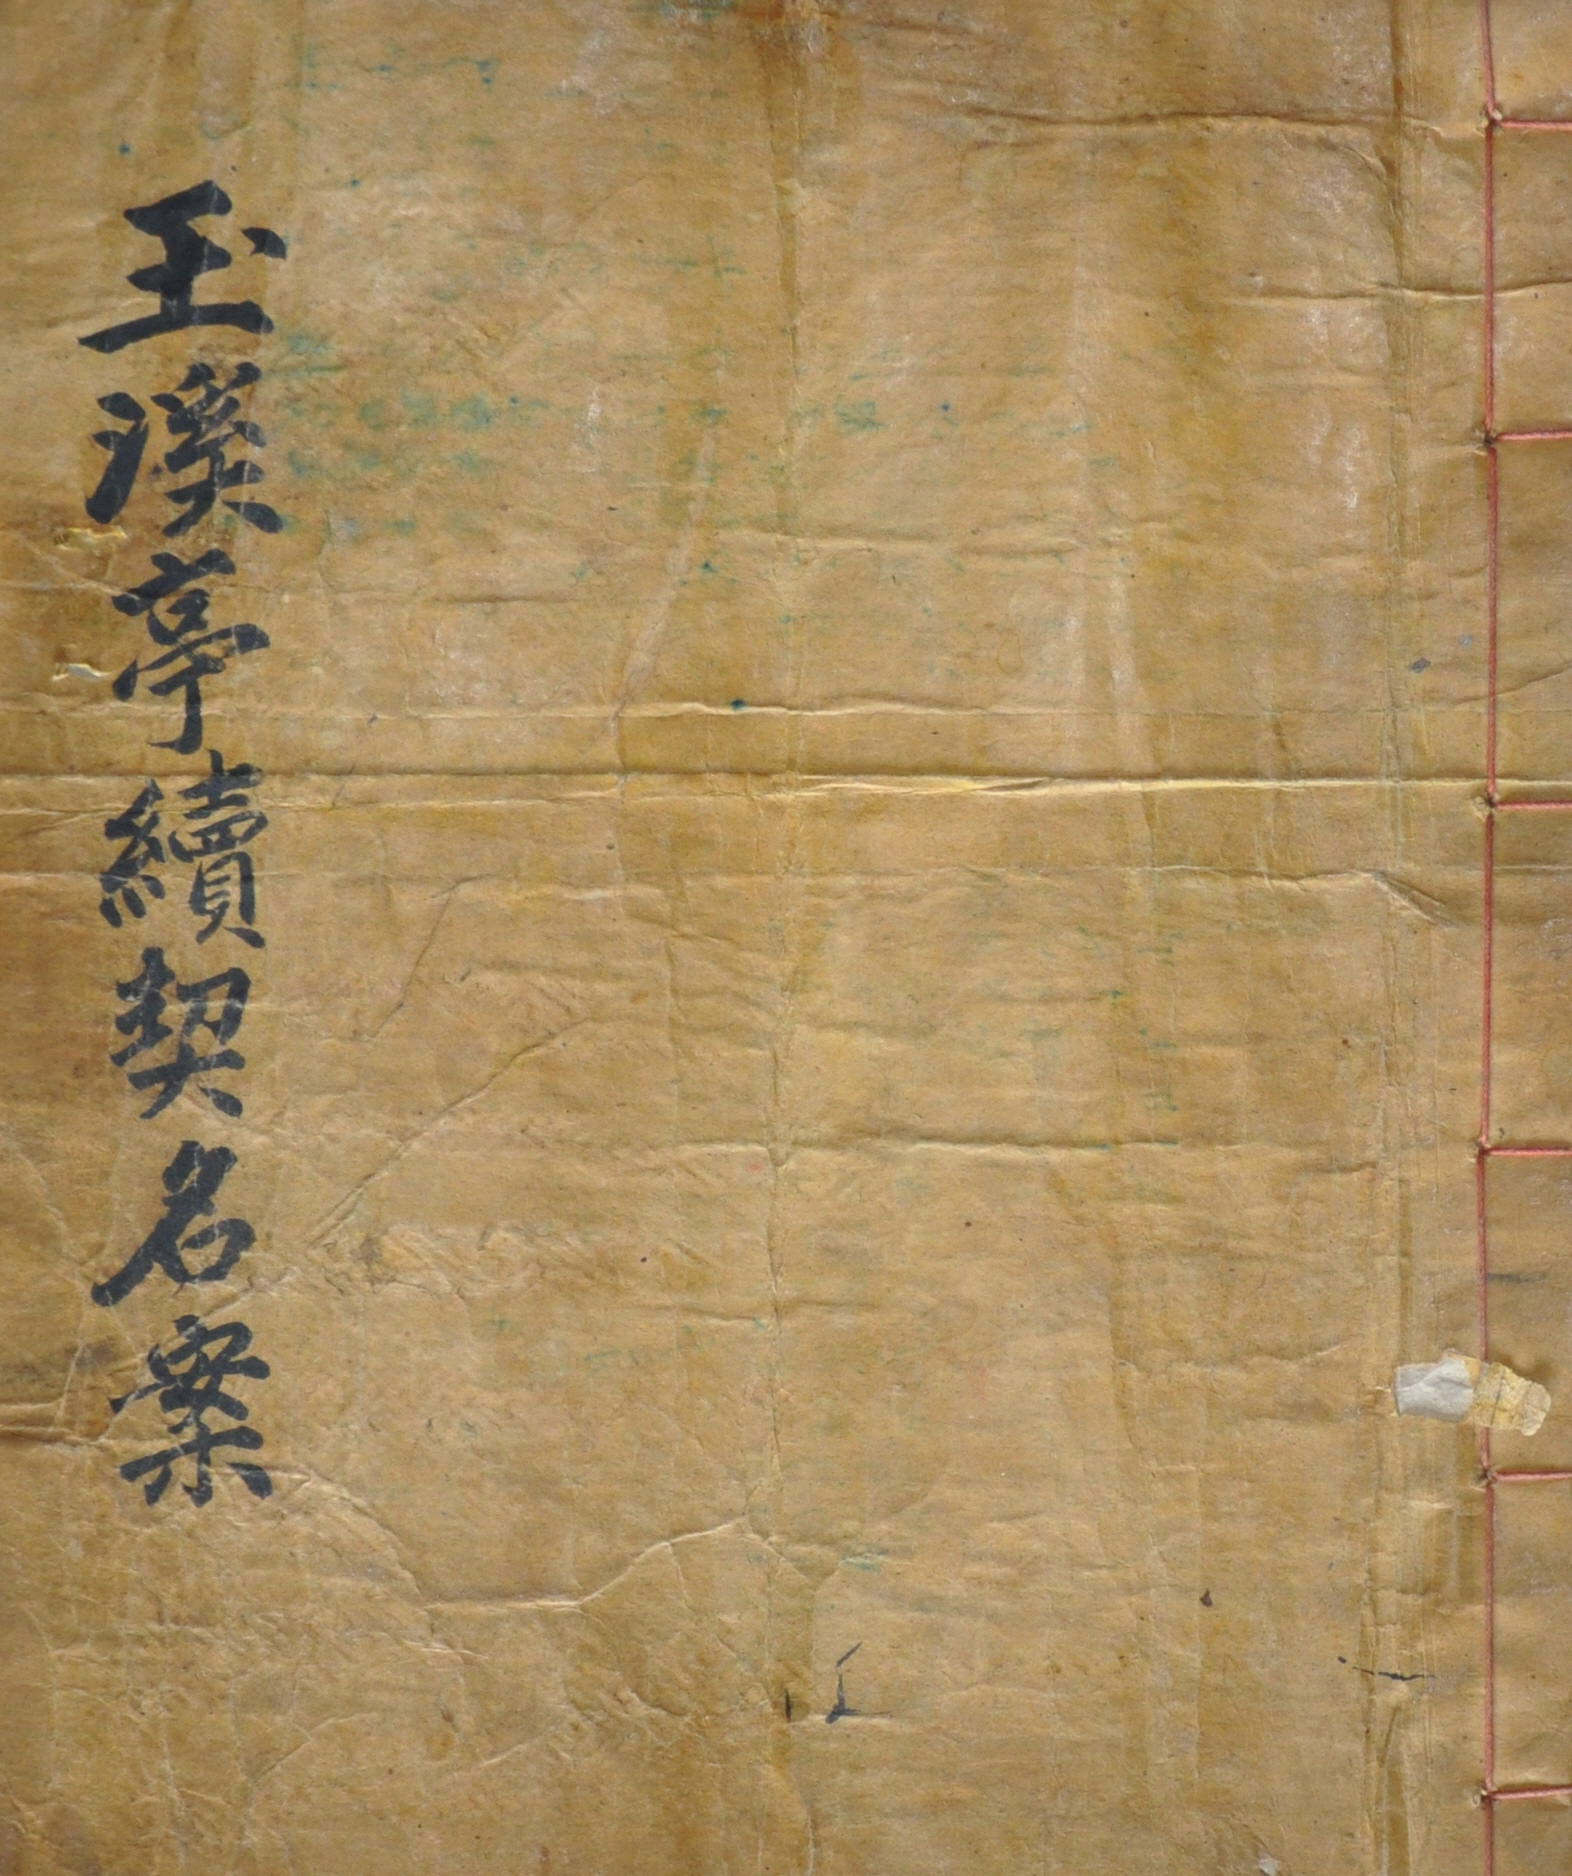 玉溪亭續契名案